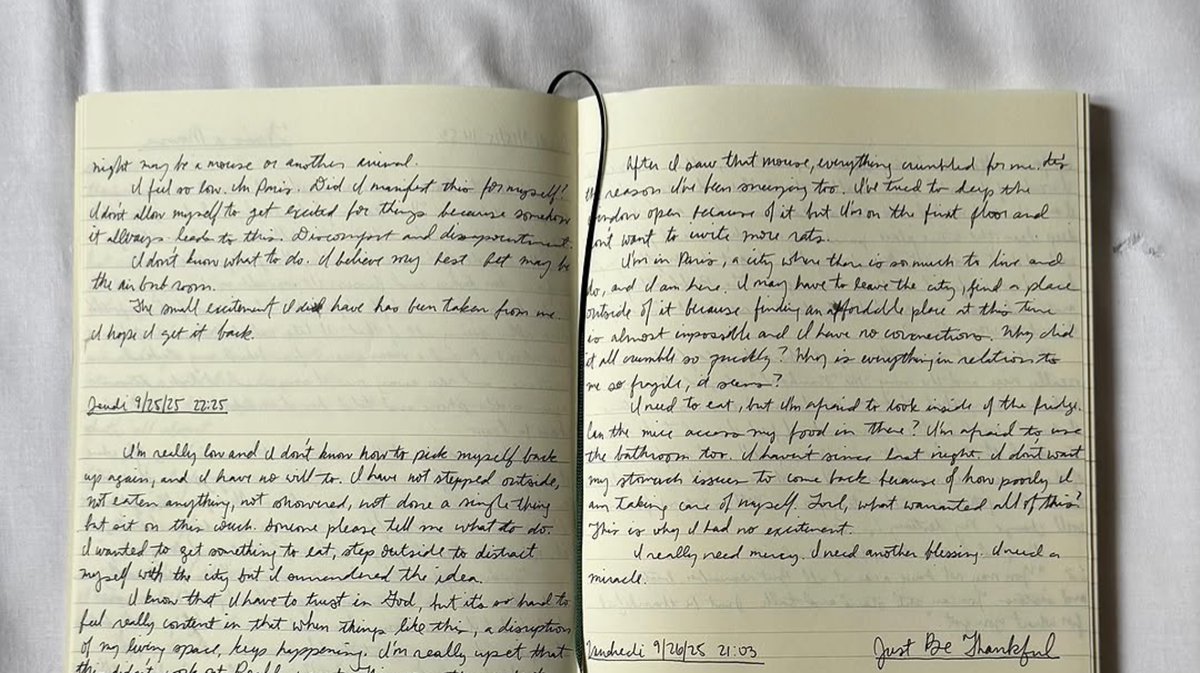 night may be a mouse or another animal.
I feel so low. In Paris. Did I manifest this for myself?
I don't allow myself to get excited for things because somehow
it always leads to this. Discomfort and disappointment.
I don't know what to do. I believe my best bet may be
the air bnb room.
The small excitement I did have has been taken from me.
I hope I get it back.
Jeudi 9/25/25 22:25
I'm really low and I don't know how to pick myself back
up again, and I have no will to. I have not stepped outside,
not eaten anything, not showered, not done a single thing
but sit on this couch. Someone please tell me what to do.
I wanted to get something to eat, step outside to distract
myself with the city but I surrendered the idea.
I know that I have to trust in God, but it's so hard to
feel really content in that when things like this, a disruption
of my living space, keeps happening. I'm really upset that
this didn't work out.
After I saw that mouse, everything crumbled for me. It's
the reason I've been sneezing too. I've tried to keep the
window open because of it but I'm on the first floor and
don't want to invite more rats.
I'm in Paris, a city where there is so much to live and
do, and I am here. I may have to leave the city, find a place
outside of it because finding an affordable place at this time
is almost impossible and I have no connections. Why did
it all crumble so quickly? Why is everything in relation to
me so fragile, it seems?
I need to eat, but I'm afraid to look inside of the fridge.
Can the mice access my food in there? I'm afraid to use
the bathroom too. I haven't since last night. I don't want
my stomach issues to come back because of how poorly I
am taking care of myself. Lord, what warranted all of this?
This is why I had no excitement.
I really need mercy. I need another blessing. I need a
miracle.
Vendredi 9/26/25 21:03 Just Be Thankful